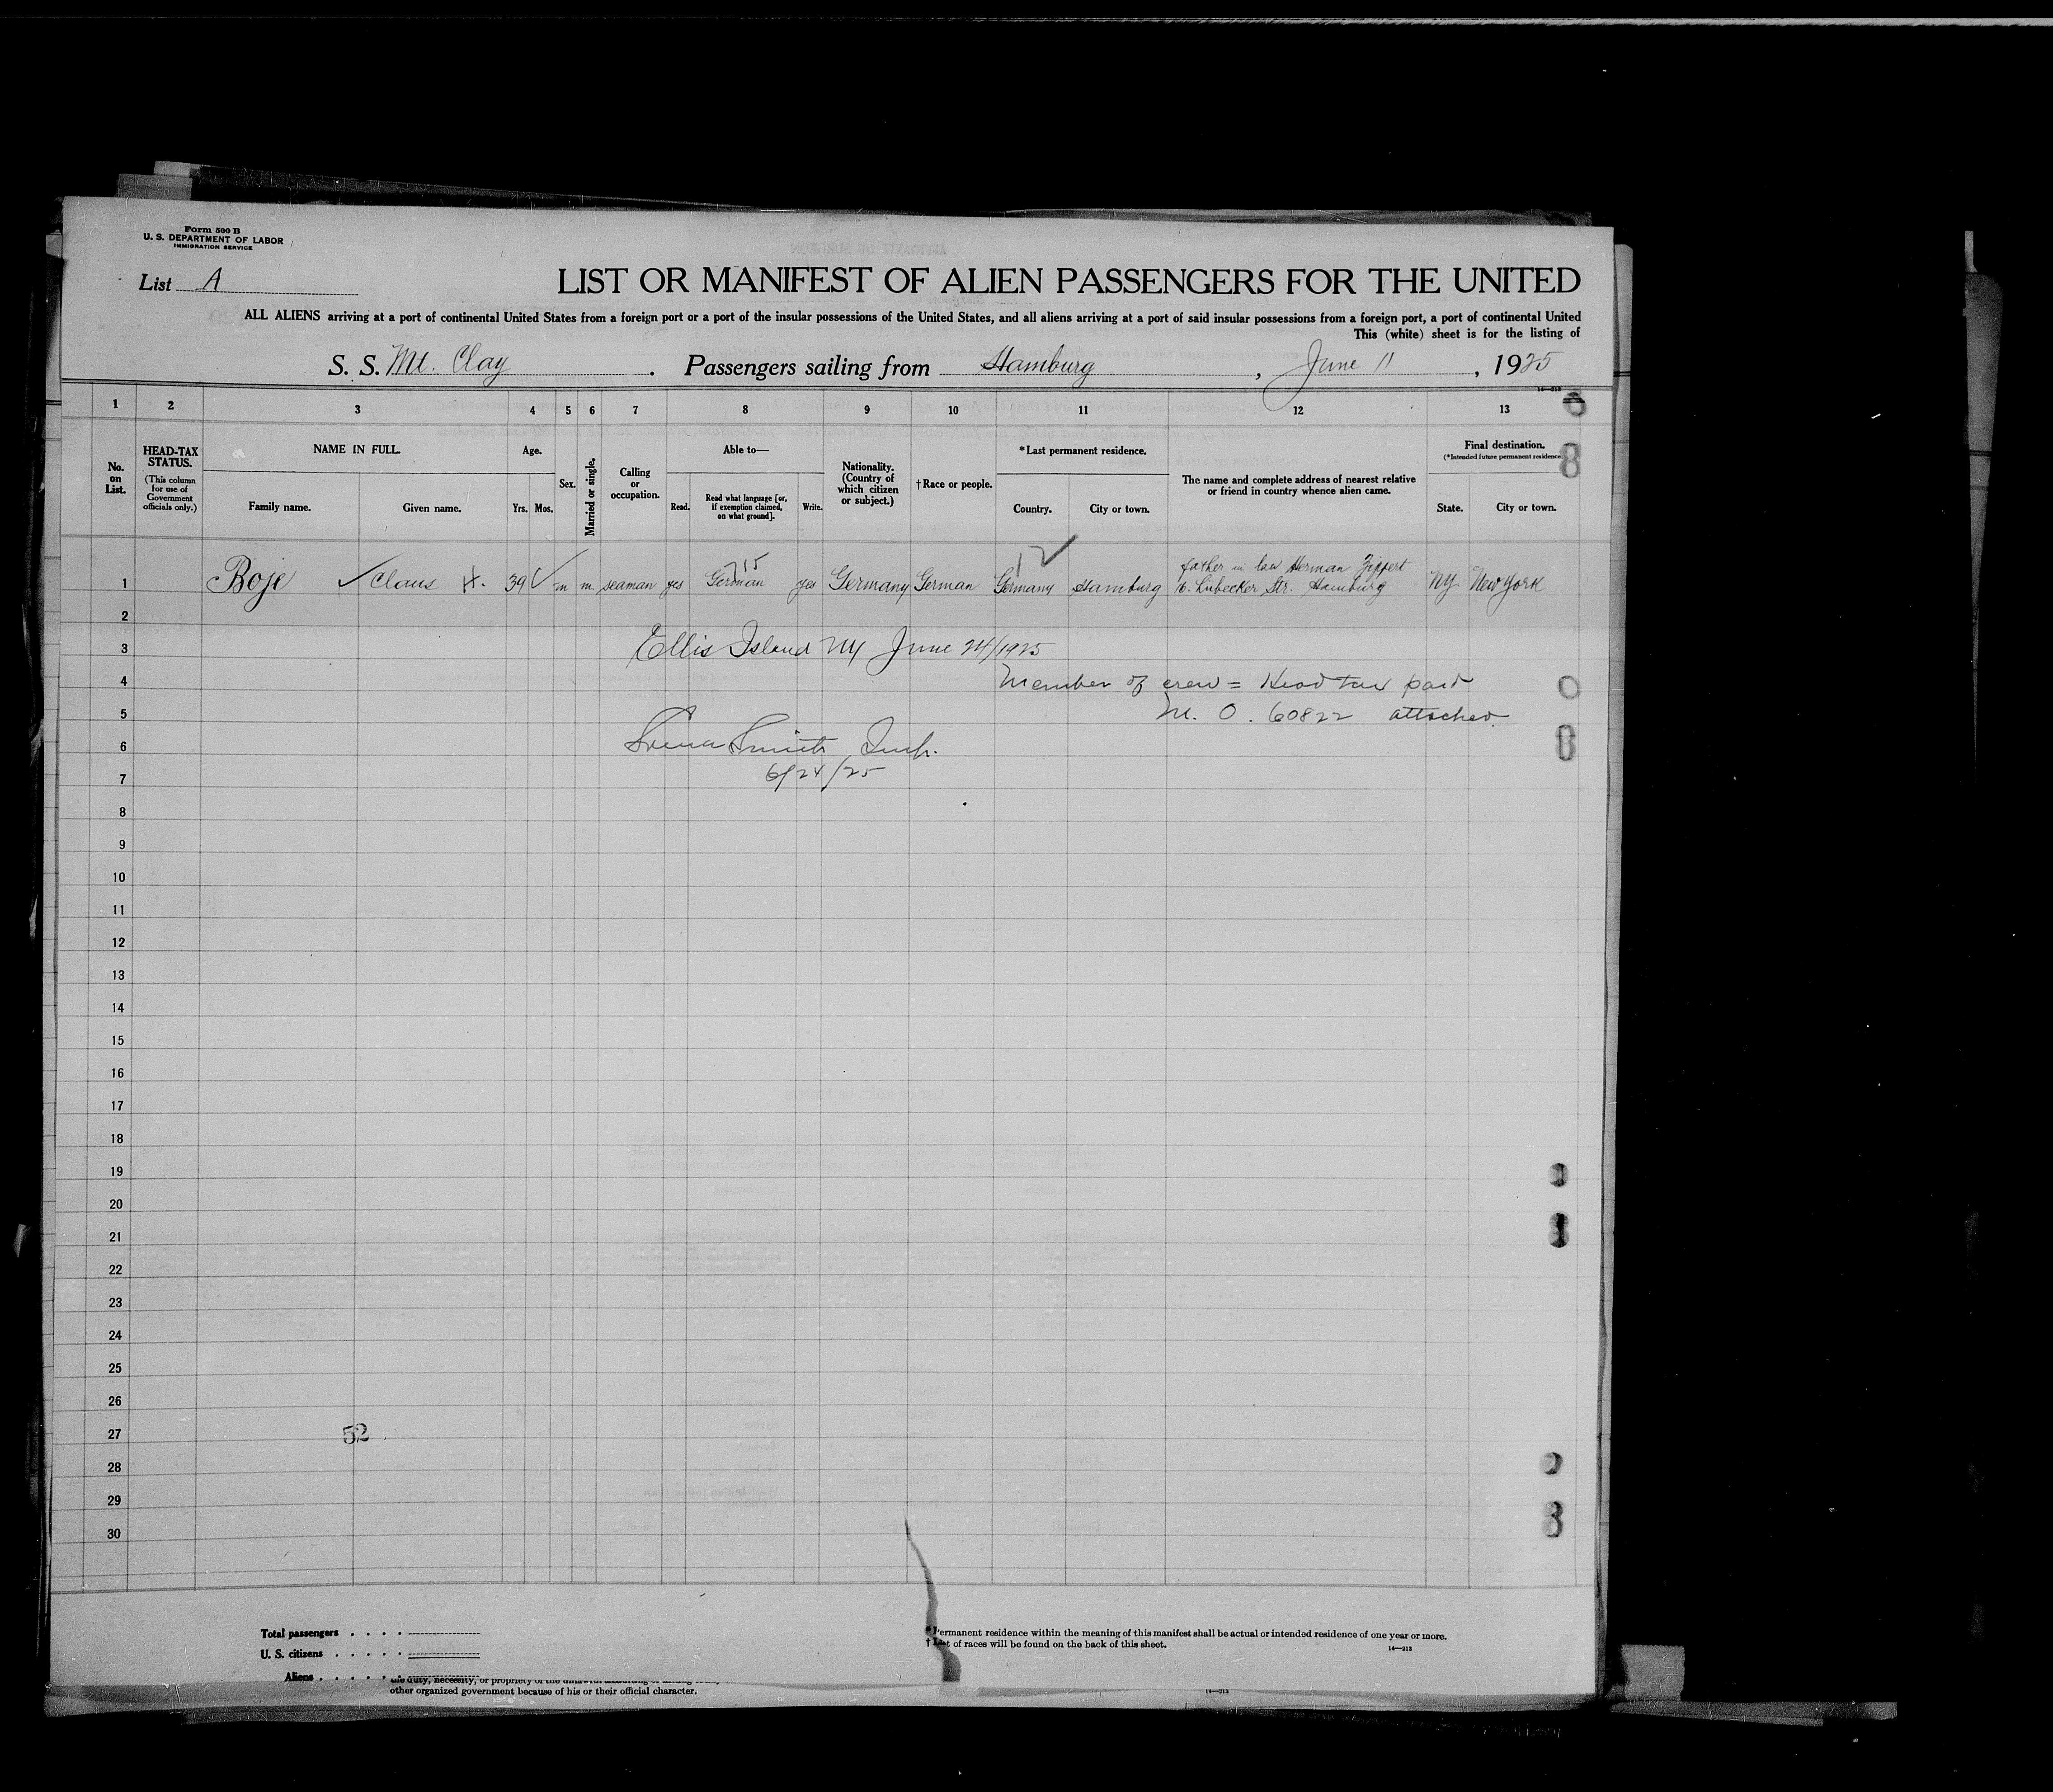 Form 500 B
U. S. DEPARTMENT OF LABOR
IMMIGRATION SERVICE
List A
LIST OR MANIFEST OF ALIEN PASSENGERS FOR THE UNITED
ALL ALIENS arriving at a port of continental United States from a foreign port or a port of the insular possessions of the United States, and all aliens arriving at a port of said insular possessions from a foreign port, a port of continental United
This (white) sheet is for the listing of
S. S. Mt. Clay . Passengers sailing from Hamburg , June 11 , 1925
1 2 3 4 5 6 7 8 9 10 11 12 13
No. on List.
HEAD-TAX STATUS.
(This column for use of Government officials only.)
NAME IN FULL.
Family name. Given name.
Age.
Yrs. Mos.
Sex.
Married or single.
Calling or occupation.
Able to—
Read. Read what language [or, if exemption claimed, on what ground]. Write.
Nationality. (Country of which citizen or subject.)
† Race or people.
* Last permanent residence.
Country. City or town.
The name and complete address of nearest relative or friend in country whence alien came.
Final destination.
(*Intended future permanent residence.)
State. City or town.
715 12
father in law Herman Zippert
1 Boje ✓ Claus H. 39 m m seaman yes German yes Germany German Germany Hamburg Lubecker Str. Hamburg NY New York
2
3 Ellis Island NY June 24/1925
4 Member of crew = Head tax paid
5 M. O. 60822 attached.
6 Smith, Insp.
7 6/24/25
8
9
10
11
12
13
14
15
16
17
18
19
20
21
22
23
24
25
26
27 52
28
29
30
Total passengers . . . .
U. S. citizens . . . . .
Aliens . . . . . .
* Permanent residence within the meaning of this manifest shall be actual or intended residence of one year or more.
† List of races will be found on the back of this sheet.
14—213
other organized government because of his or their official character.